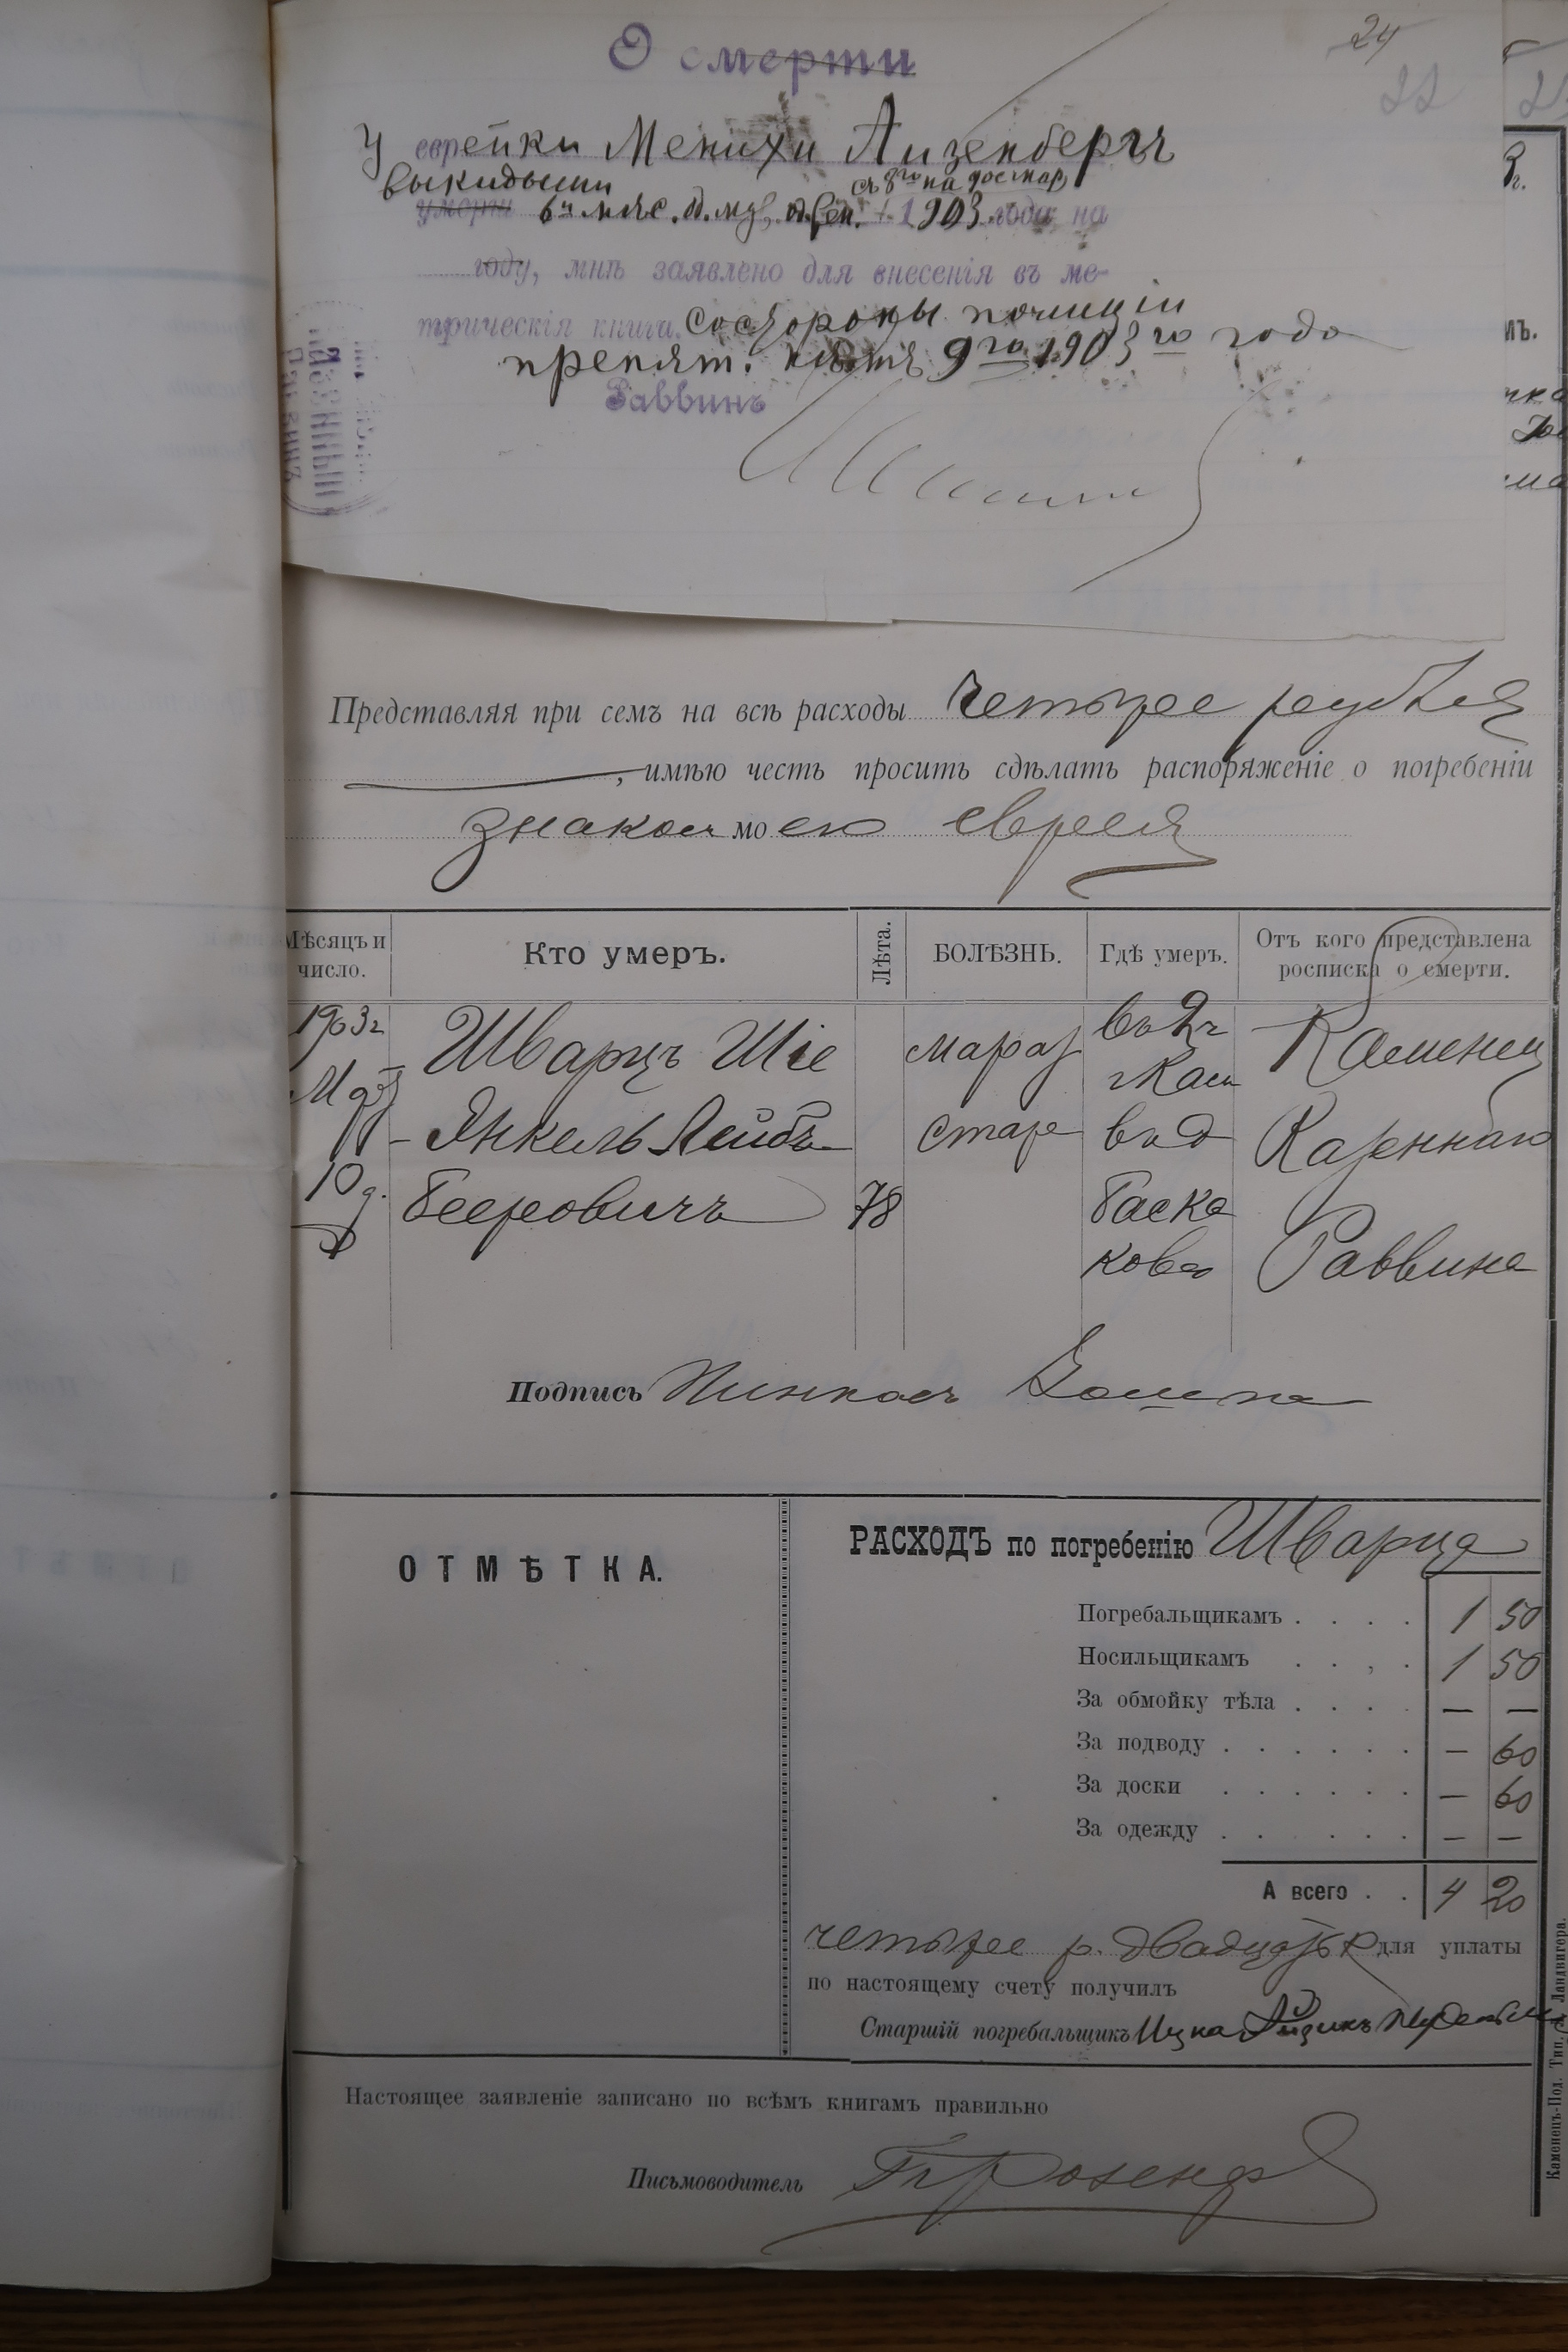 24
22
О смерти
У еврейки Менихи Айзенбергъ
выкидыши съ 8го на
умерш 6ч мѣс. 1903 года на
году, мнѣ заявлено для внесенія въ ме-
трическія книги. Состороны полиціи
препят. нѣтъ 9го 1903го года
Раввинъ
Представляя при семъ на всѣ расходы четыре рубля
, имѣю честь просить сдѣлать распоряженіе о погребеніи
знаком мо его еврея
Мѣсяцъ и число.
Кто умеръ.
Лѣта.
БОЛѢЗНЬ.
Гдѣ умеръ.
Отъ кого представлена росписка о смерти.
1903г
Шварцъ Шіе
мараз
Каменец
Янкель Лейбъ
старе
въ д
Казеннаго
10 д.
Бееровичъ
78
Баска
ково
Раввина
Подпись Пинкасъ
ОТМѢТКА.
РАСХОДЪ по погребенію Шварца
Погребальщикамъ . . . . 1 50
Носильщикамъ . . . . 1 50
За обмойку тѣла . . . . — —
За подводу . . . . . . — 60
За доски . . . . . . — 60
За одежду . . . . . . — —
А всего . . 4 20
четыре р. двадцать к для уплаты
по настоящему счету получилъ
Старшій погребальщикъ Ицко Айзикъ
Настоящее заявленіе записано по всѣмъ книгамъ правильно
Письмоводитель
Каменецъ-Под. Тип. А. Ландвигера.